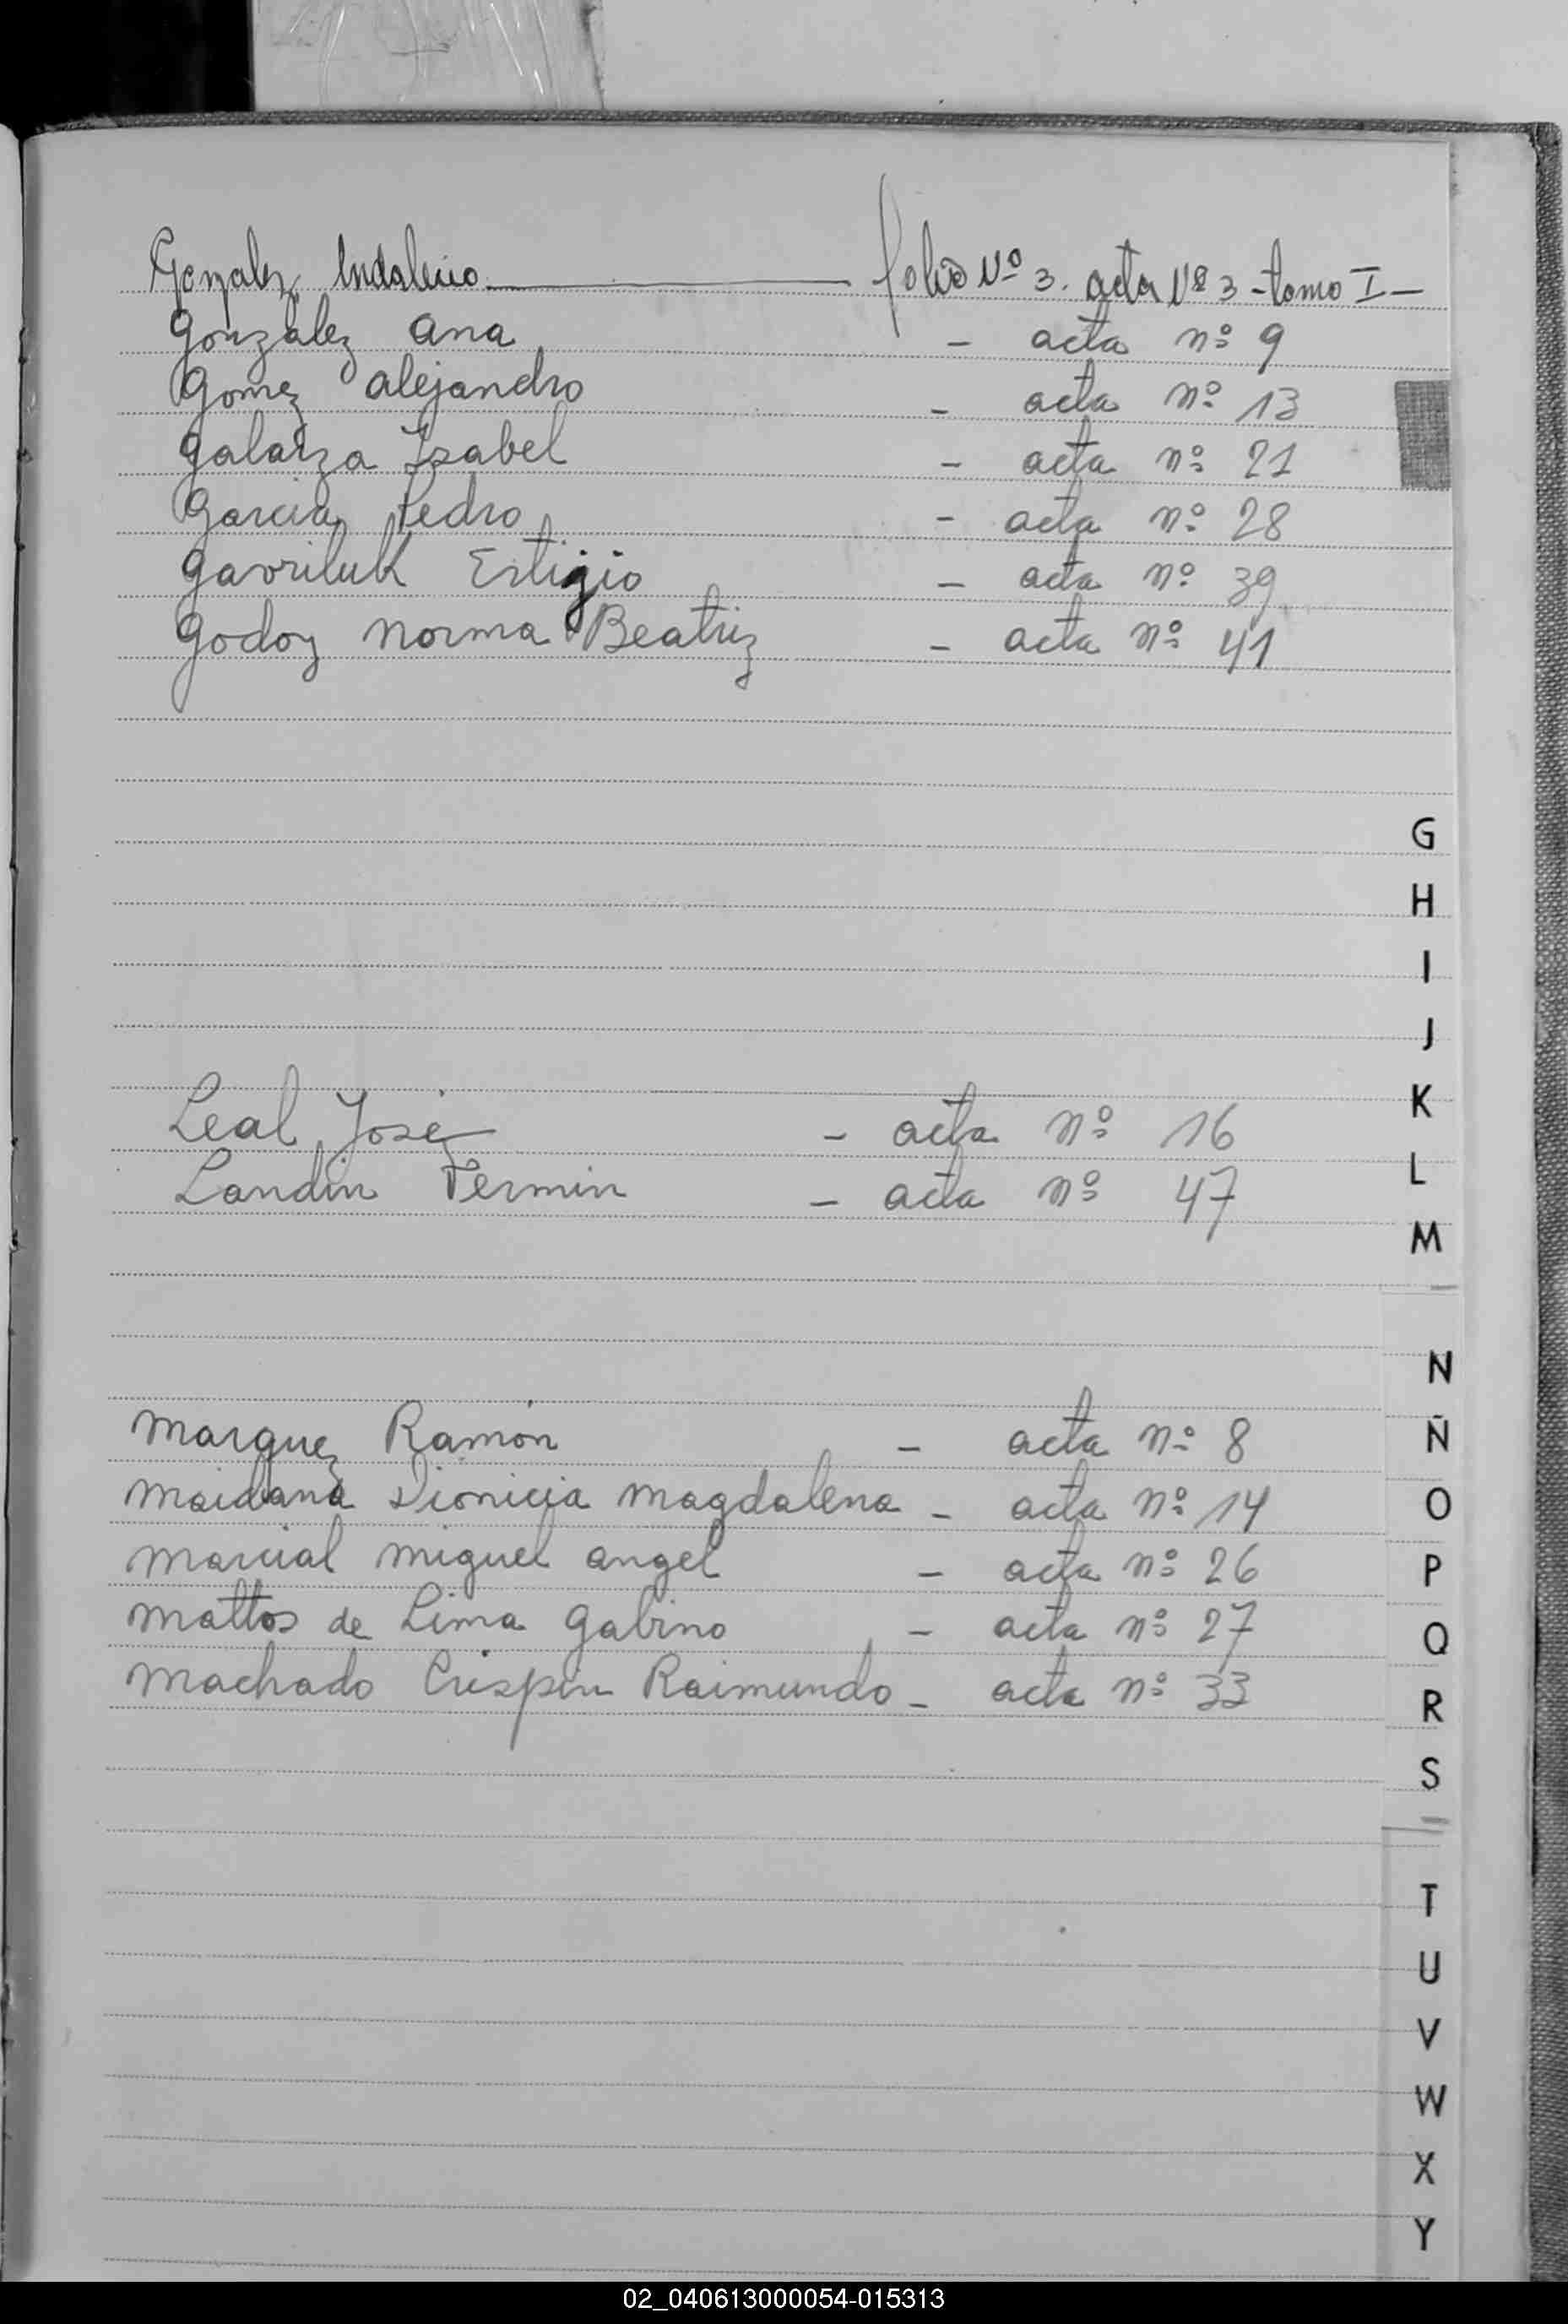 Gonzalez, Indalecio — folio Nº 3. acta Nº 3 - tomo I -
González Ana - acta nº 9
Gomez Alejandro - acta nº 13
Galarza Isabel - acta nº 21
Garcia Pedro - acta nº 28
Gavriluk Estigio - acta nº 39
Godoy Norma Beatriz - acta nº 41
G
H
I
J
K
Leal José - acta nº 16
L
Landin Fermin - acta nº 47
M
N
Marquez Ramón - acta nº 8
Ñ
Maidana Dionicia Magdalena - acta nº 14
O
Marcial Miguel Angel - acta nº 26
P
Mattos de Lima Gabino - acta nº 27
Q
Machado Crispin Raimundo - acta nº 33
R
S
T
U
V
W
X
Y
02_040613000054-015313